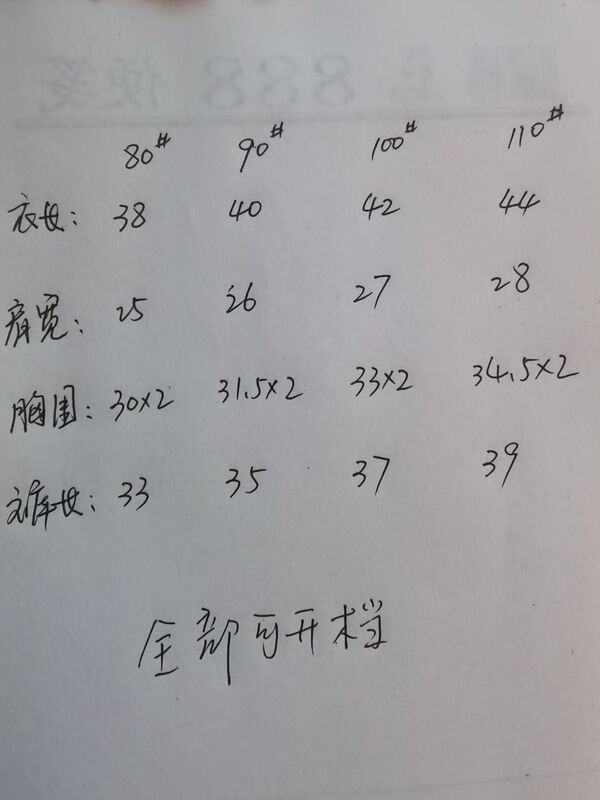 80# 90# 100# 110#
衣长: 38 40 42 44
肩宽: 25 26 27 28
胸围: 30×2 31.5×2 33×2 34.5×2
裤长: 33 35 37 39
全部可开档